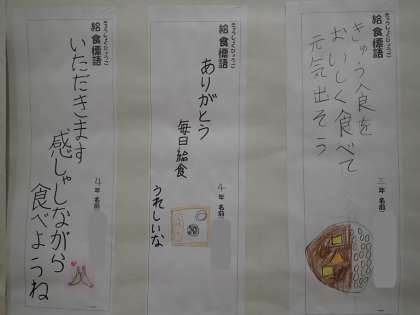 きゅうしょくひょうご
給食標語
きゅう食を
おいしく食べて
元気出そう
年 名前
きゅうしょくひょうご
給食標語
ありがとう
毎日給食
うれしいな
4年 名前
きゅうしょくひょうご
給食標語
いただきます
感しゃしながら
食べようね
4年 名前